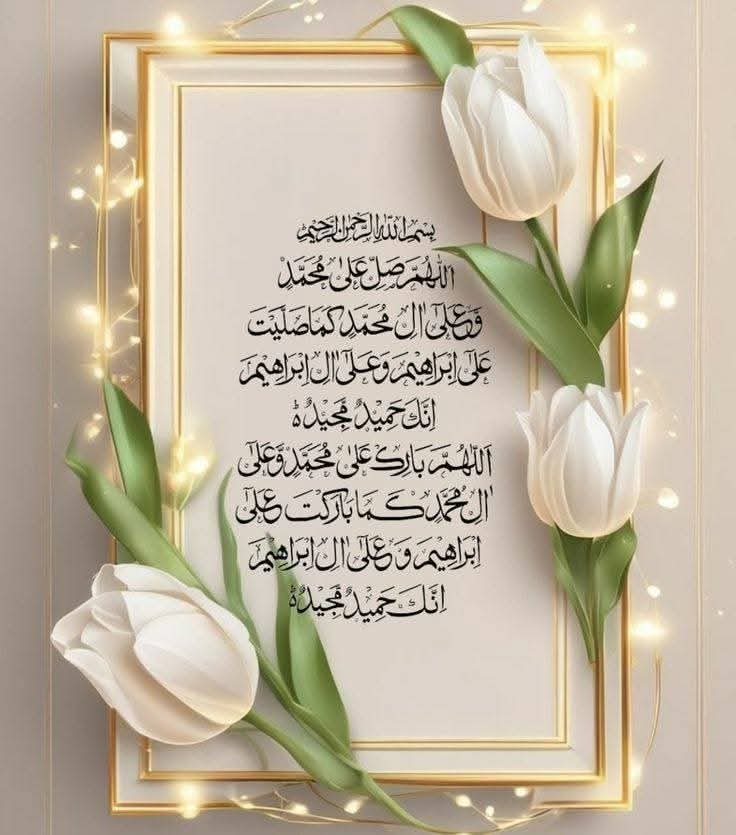 بِسْمِ اللهِ الرَّحْمٰنِ الرَّحِيْمِ
اَللّٰهُمَّ صَلِّ عَلٰى مُحَمَّدٍ
وَّعَلٰٓى اٰلِ مُحَمَّدٍ كَمَا صَلَّيْتَ
عَلٰٓى اِبْرَاهِيْمَ وَعَلٰٓى اٰلِ اِبْرَاهِيْمَ
اِنَّكَ حَمِيْدٌ مَّجِيْدٌ ۃ
اَللّٰهُمَّ بَارِكْ عَلٰى مُحَمَّدٍ وَّعَلٰٓى
اٰلِ مُحَمَّدٍ كَمَا بَارَكْتَ عَلٰٓى
اِبْرَاهِيْمَ وَعَلٰٓى اٰلِ اِبْرَاهِيْمَ
اِنَّكَ حَمِيْدٌ مَّجِيْدٌ ۃ